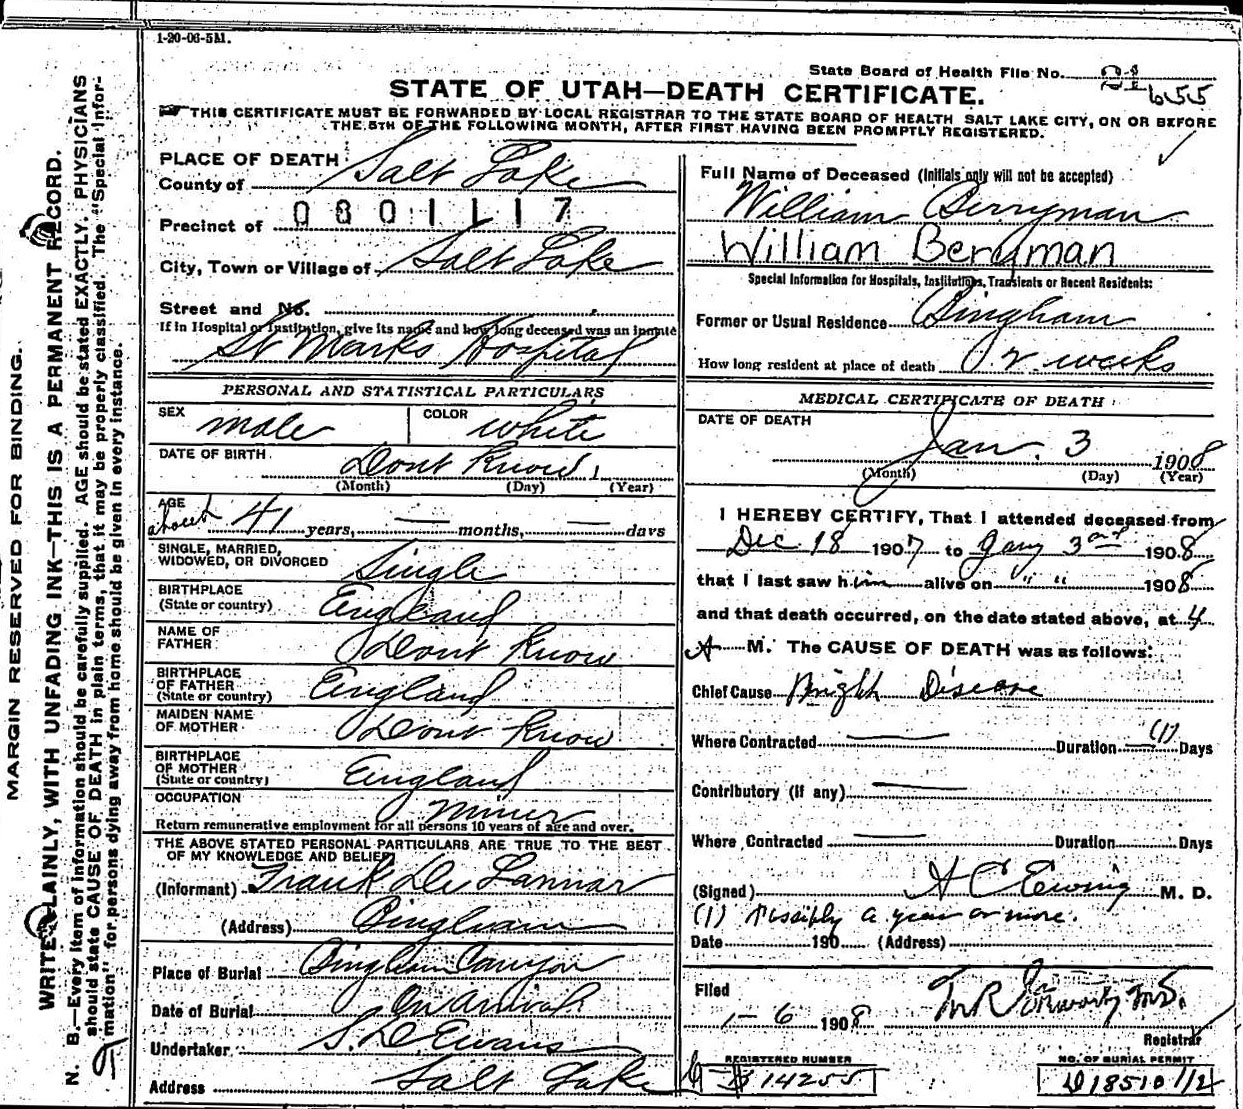 1-20-06-5M.
State Board of Health File No. 655
STATE OF UTAH—DEATH CERTIFICATE.
THIS CERTIFICATE MUST BE FORWARDED BY LOCAL REGISTRAR TO THE STATE BOARD OF HEALTH SALT LAKE CITY, ON OR BEFORE
THE 5TH OF THE FOLLOWING MONTH, AFTER FIRST HAVING BEEN PROMPTLY REGISTERED.
MARGIN RESERVED FOR BINDING.
WRITE PLAINLY, WITH UNFADING INK—THIS IS A PERMANENT RECORD.
N. B.—Every item of information should be carefully supplied. AGE should be stated EXACTLY. PHYSICIANS
should state CAUSE OF DEATH in plain terms, that it may be properly classified. The "Special Infor-
mation" for persons dying away from home should be given in every instance.
PLACE OF DEATH
County of Salt Lake
0801117
Precinct of
City, Town or Village of Salt Lake
Street and No.
If in Hospital or Institution, give its name and how long deceased was an inmate
St Marks Hospital
PERSONAL AND STATISTICAL PARTICULARS
SEX male COLOR white
DATE OF BIRTH Dont Know
(Month) (Day) (Year)
AGE
about 41 years, — months, — days
SINGLE, MARRIED,
WIDOWED, OR DIVORCED Single
BIRTHPLACE
(State or country) England
NAME OF
FATHER Dont Know
BIRTHPLACE
OF FATHER
(State or country) England
MAIDEN NAME
OF MOTHER Dont Know
BIRTHPLACE
OF MOTHER
(State or country) England
OCCUPATION Miner
Return remunerative employment for all persons 10 years of age and over.
THE ABOVE STATED PERSONAL PARTICULARS ARE TRUE TO THE BEST
OF MY KNOWLEDGE AND BELIEF
(Informant) Frank De
(Address) Bingham
Place of Burial Bingham Canyon
Date of Burial On Arrival
Undertaker S. D Evans
Address Salt Lake
Full Name of Deceased (Initials only will not be accepted)
William Berryman
William Berryman
Special Information for Hospitals, Institutions, Transients or Recent Residents:
Former or Usual Residence Bingham
How long resident at place of death 2 weeks
MEDICAL CERTIFICATE OF DEATH
DATE OF DEATH
Jan. 3 1908
(Month) (Day) (Year)
I HEREBY CERTIFY, That I attended deceased from
Dec 18 1907 to Jany 3 1908
that I last saw him alive on " " 1908
and that death occurred, on the date stated above, at 4
A M. The CAUSE OF DEATH was as follows:
Chief Cause Bright Disease
Where Contracted — Duration — (1) Days
Contributory (if any) —
Where Contracted — Duration Days
(Signed) A C Ewing M. D.
(1) Possibly a year or more.
Date 190 (Address)
Filed
1-6 1908 M.D.
Registrar
REGISTERED NUMBER
14255
NO. OF BURIAL PERMIT
D 18510 1/2